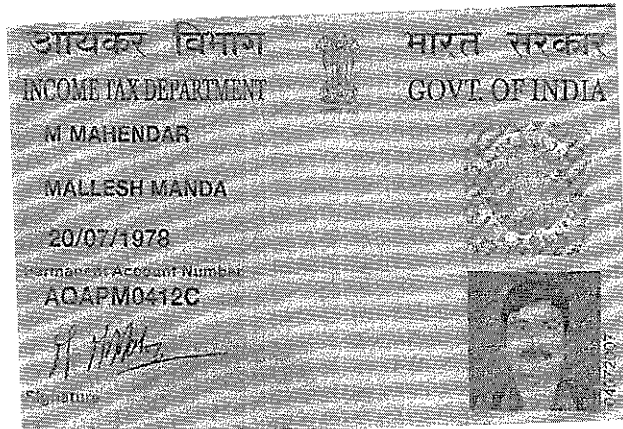 आयकर विभाग भारत सरकार
INCOME TAX DEPARTMENT GOVT. OF INDIA
M MAHENDAR
MALLESH MANDA
20/07/1978
Permanent Account Number
AQAPM0412C
Signature